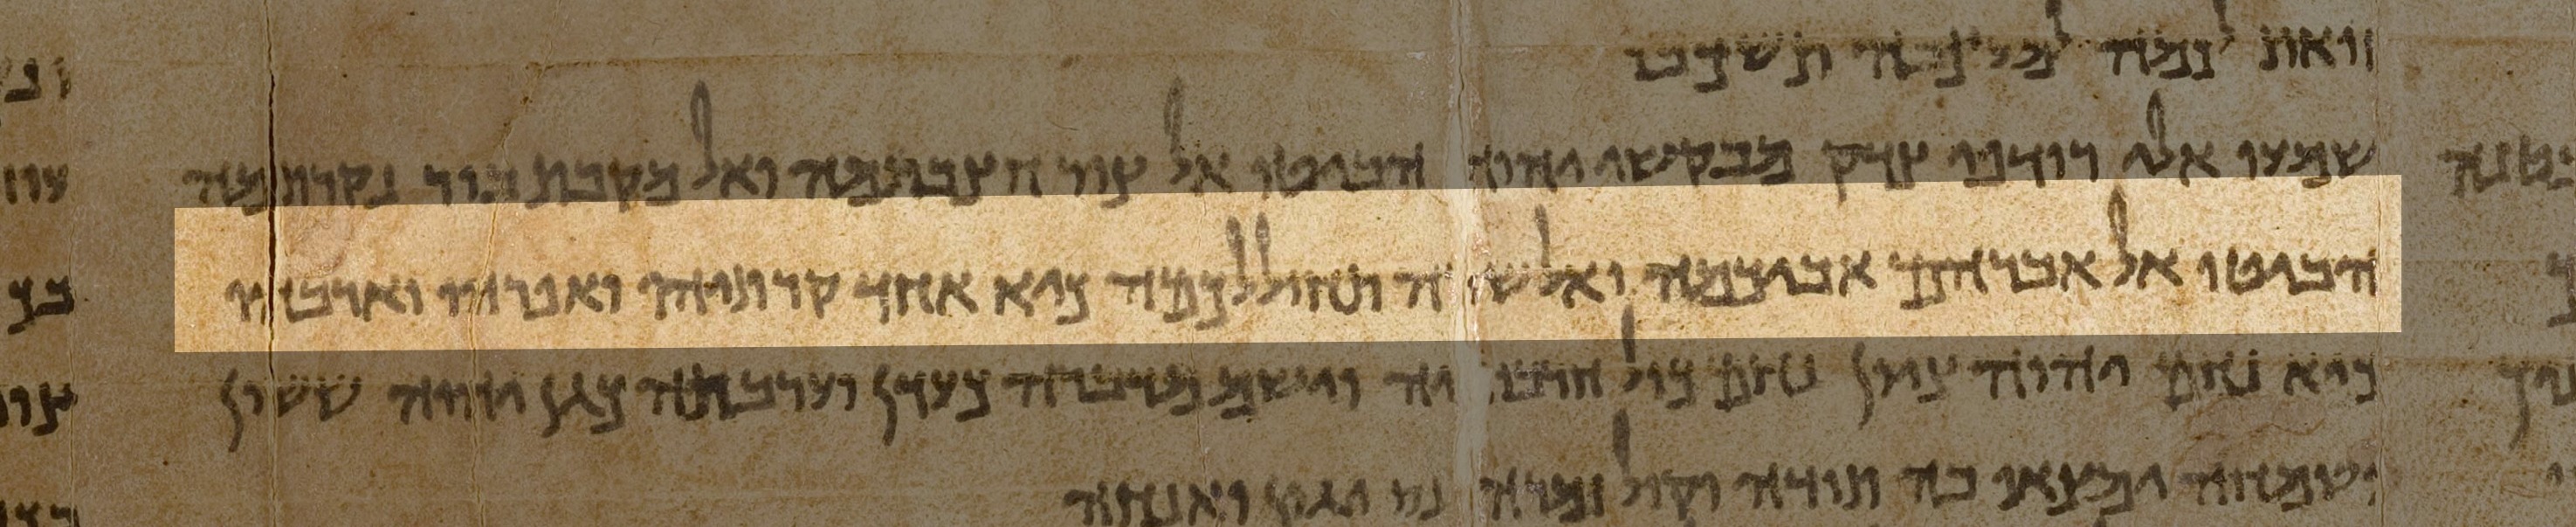 זואת לכמה למעצבה תשכבו
שמעו אלי רודפי צדק מבקשי יהוה הביטו אל צור חצבתמה ואל מקבת בור נקרתמה
הביטו אל אברהם אביכמה ואל שרה תחוללכמה כיא אחד קרתיהו ואפרהו וארבהו
כיא נחם יהוה ציון נחם כול חרבותיה וישם מדברה כעדן וערבתה כגן יהוה ששון
ושמחה ימצאו בה תודה וקול זמרה נס יגון ואנחה